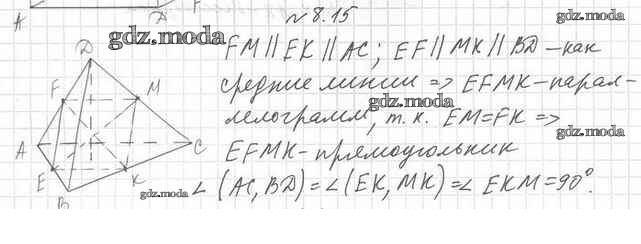 A D F
№ 8.15
gdz.moda
gdz.moda
FM || EK || AC; EF || MK || BD – как
средние линии => EFMK – парал-
gdz.moda
лелограмм, т.к. EM = FK =>
gdz.moda
EFMK – прямоугольник
∠(AC, BD) = ∠(EK, MK) = ∠EKM = 90°.
gdz.moda
D
F M
A C
E K
B